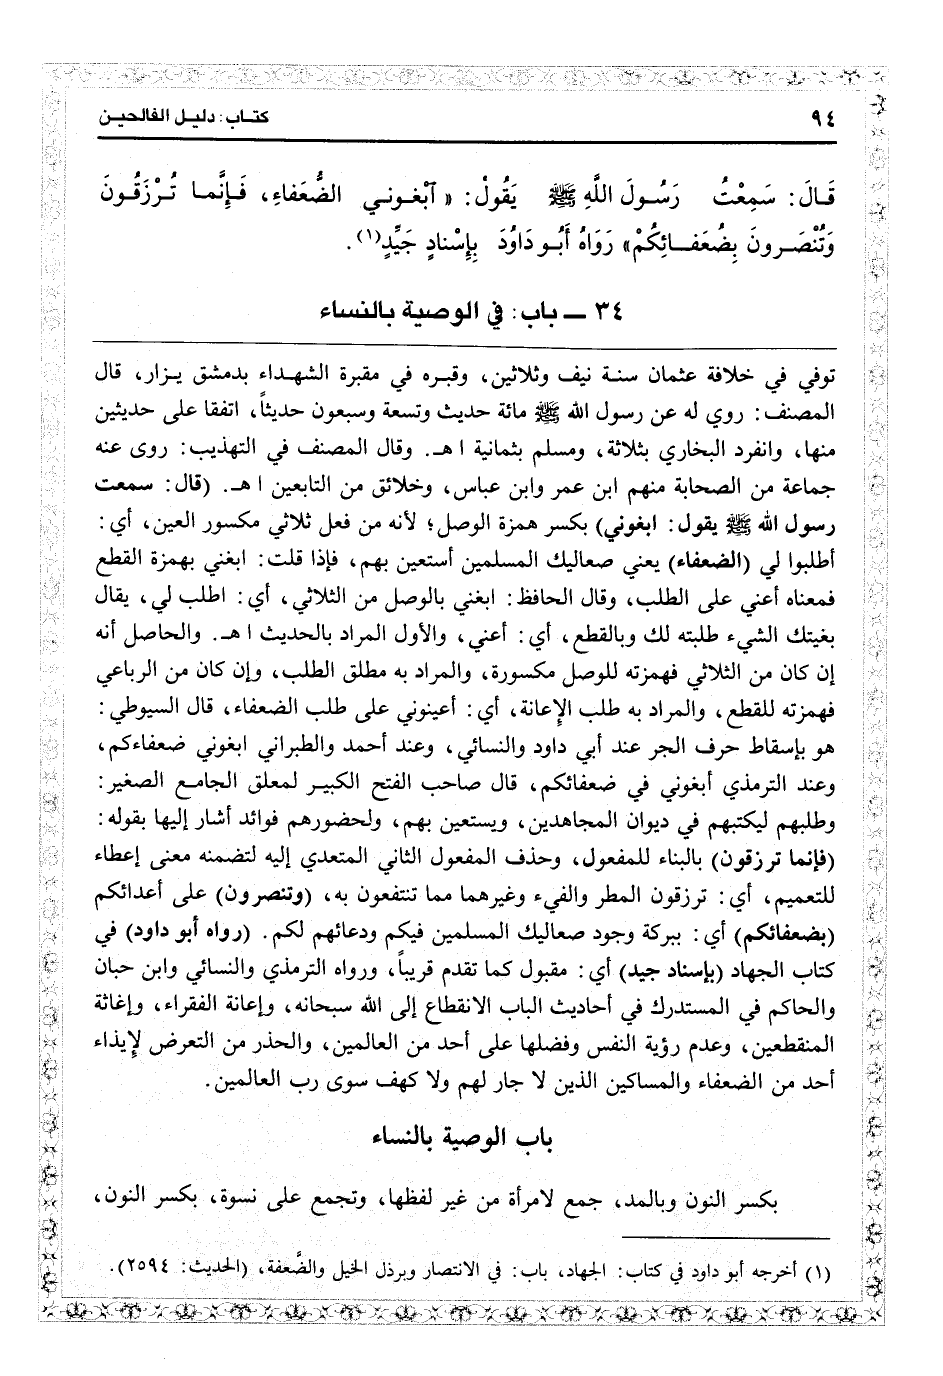 ٩٤
كتاب: دليل الفالحين
قَالَ: سَمِعْتُ رَسُولَ اللَّهِ ﷺ يَقُولُ: «ٱبْغُونِي الضُّعَفَاءِ، فَإِنَّما تُرْزَقُونَ
وَتُنْصَرونَ بِضُعَفَائِكُمْ» رَوَاهُ أَبُو دَاوُدَ بِإِسْنادٍ جَيِّدٍ(١).
٣٤ ــ باب: في الوصية بالنساء
توفي في خلافة عثمان سنة نيف وثلاثين، وقبره في مقبرة الشهداء بدمشق يزار، قال
المصنف: روي له عن رسول الله ﷺ مائة حديث وتسعة وسبعون حديثاً، اتفقا على حديثين
منها، وانفرد البخاري بثلاثة، ومسلم بثمانية ا هـ. وقال المصنف في التهذيب: روى عنه
جماعة من الصحابة منهم ابن عمر وابن عباس، وخلائق من التابعين ا هـ. (قال: سمعت
رسول الله ﷺ يقول: ابغوني) بكسر همزة الوصل؛ لأنه من فعل ثلاثي مكسور العين، أي:
أطلبوا لي (الضعفاء) يعني صعاليك المسلمين أستعين بهم، فإذا قلت: ابغني بهمزة القطع
فمعناه أعني على الطلب، وقال الحافظ: ابغني بالوصل من الثلاثي، أي: اطلب لي، يقال
بغيتك الشيء طلبته لك وبالقطع، أي: أعني، والأول المراد بالحديث ا هـ. والحاصل أنه
إن كان من الثلاثي فهمزته للوصل مكسورة، والمراد به مطلق الطلب، وإن كان من الرباعي
فهمزته للقطع، والمراد به طلب الإعانة، أي: أعينوني على طلب الضعفاء، قال السيوطي:
هو بإسقاط حرف الجر عند أبي داود والنسائي، وعند أحمد والطبراني ابغوني ضعفاءكم،
وعند الترمذي أبغوني في ضعفائكم، قال صاحب الفتح الكبير لمعلق الجامع الصغير:
وطلبهم ليكتبهم في ديوان المجاهدين، ويستعين بهم، ولحضورهم فوائد أشار إليها بقوله:
(فإنما ترزقون) بالبناء للمفعول، وحذف المفعول الثاني المتعدي إليه لتضمنه معنى إعطاء
للتعميم، أي: ترزقون المطر والفيء وغيرهما مما تنتفعون به، (وتنصرون) على أعدائكم
(بضعفائكم) أي: ببركة وجود صعاليك المسلمين فيكم ودعائهم لكم. (رواه أبو داود) في
كتاب الجهاد (بإسناد جيد) أي: مقبول كما تقدم قريباً، ورواه الترمذي والنسائي وابن حبان
والحاكم في المستدرك في أحاديث الباب الانقطاع إلى الله سبحانه، وإعانة الفقراء، وإغاثة
المنقطعين، وعدم رؤية النفس وفضلها على أحد من العالمين، والحذر من التعرض لإيذاء
أحد من الضعفاء والمساكين الذين لا جار لهم ولا كهف سوى رب العالمين.
باب الوصية بالنساء
بكسر النون وبالمد، جمع لامرأة من غير لفظها، وتجمع على نسوة، بكسر النون،
(١) أخرجه أبو داود في كتاب: الجهاد، باب: في الانتصار وبرذل الخيل والضَّعفة، (الحديث: ٢٥٩٤).